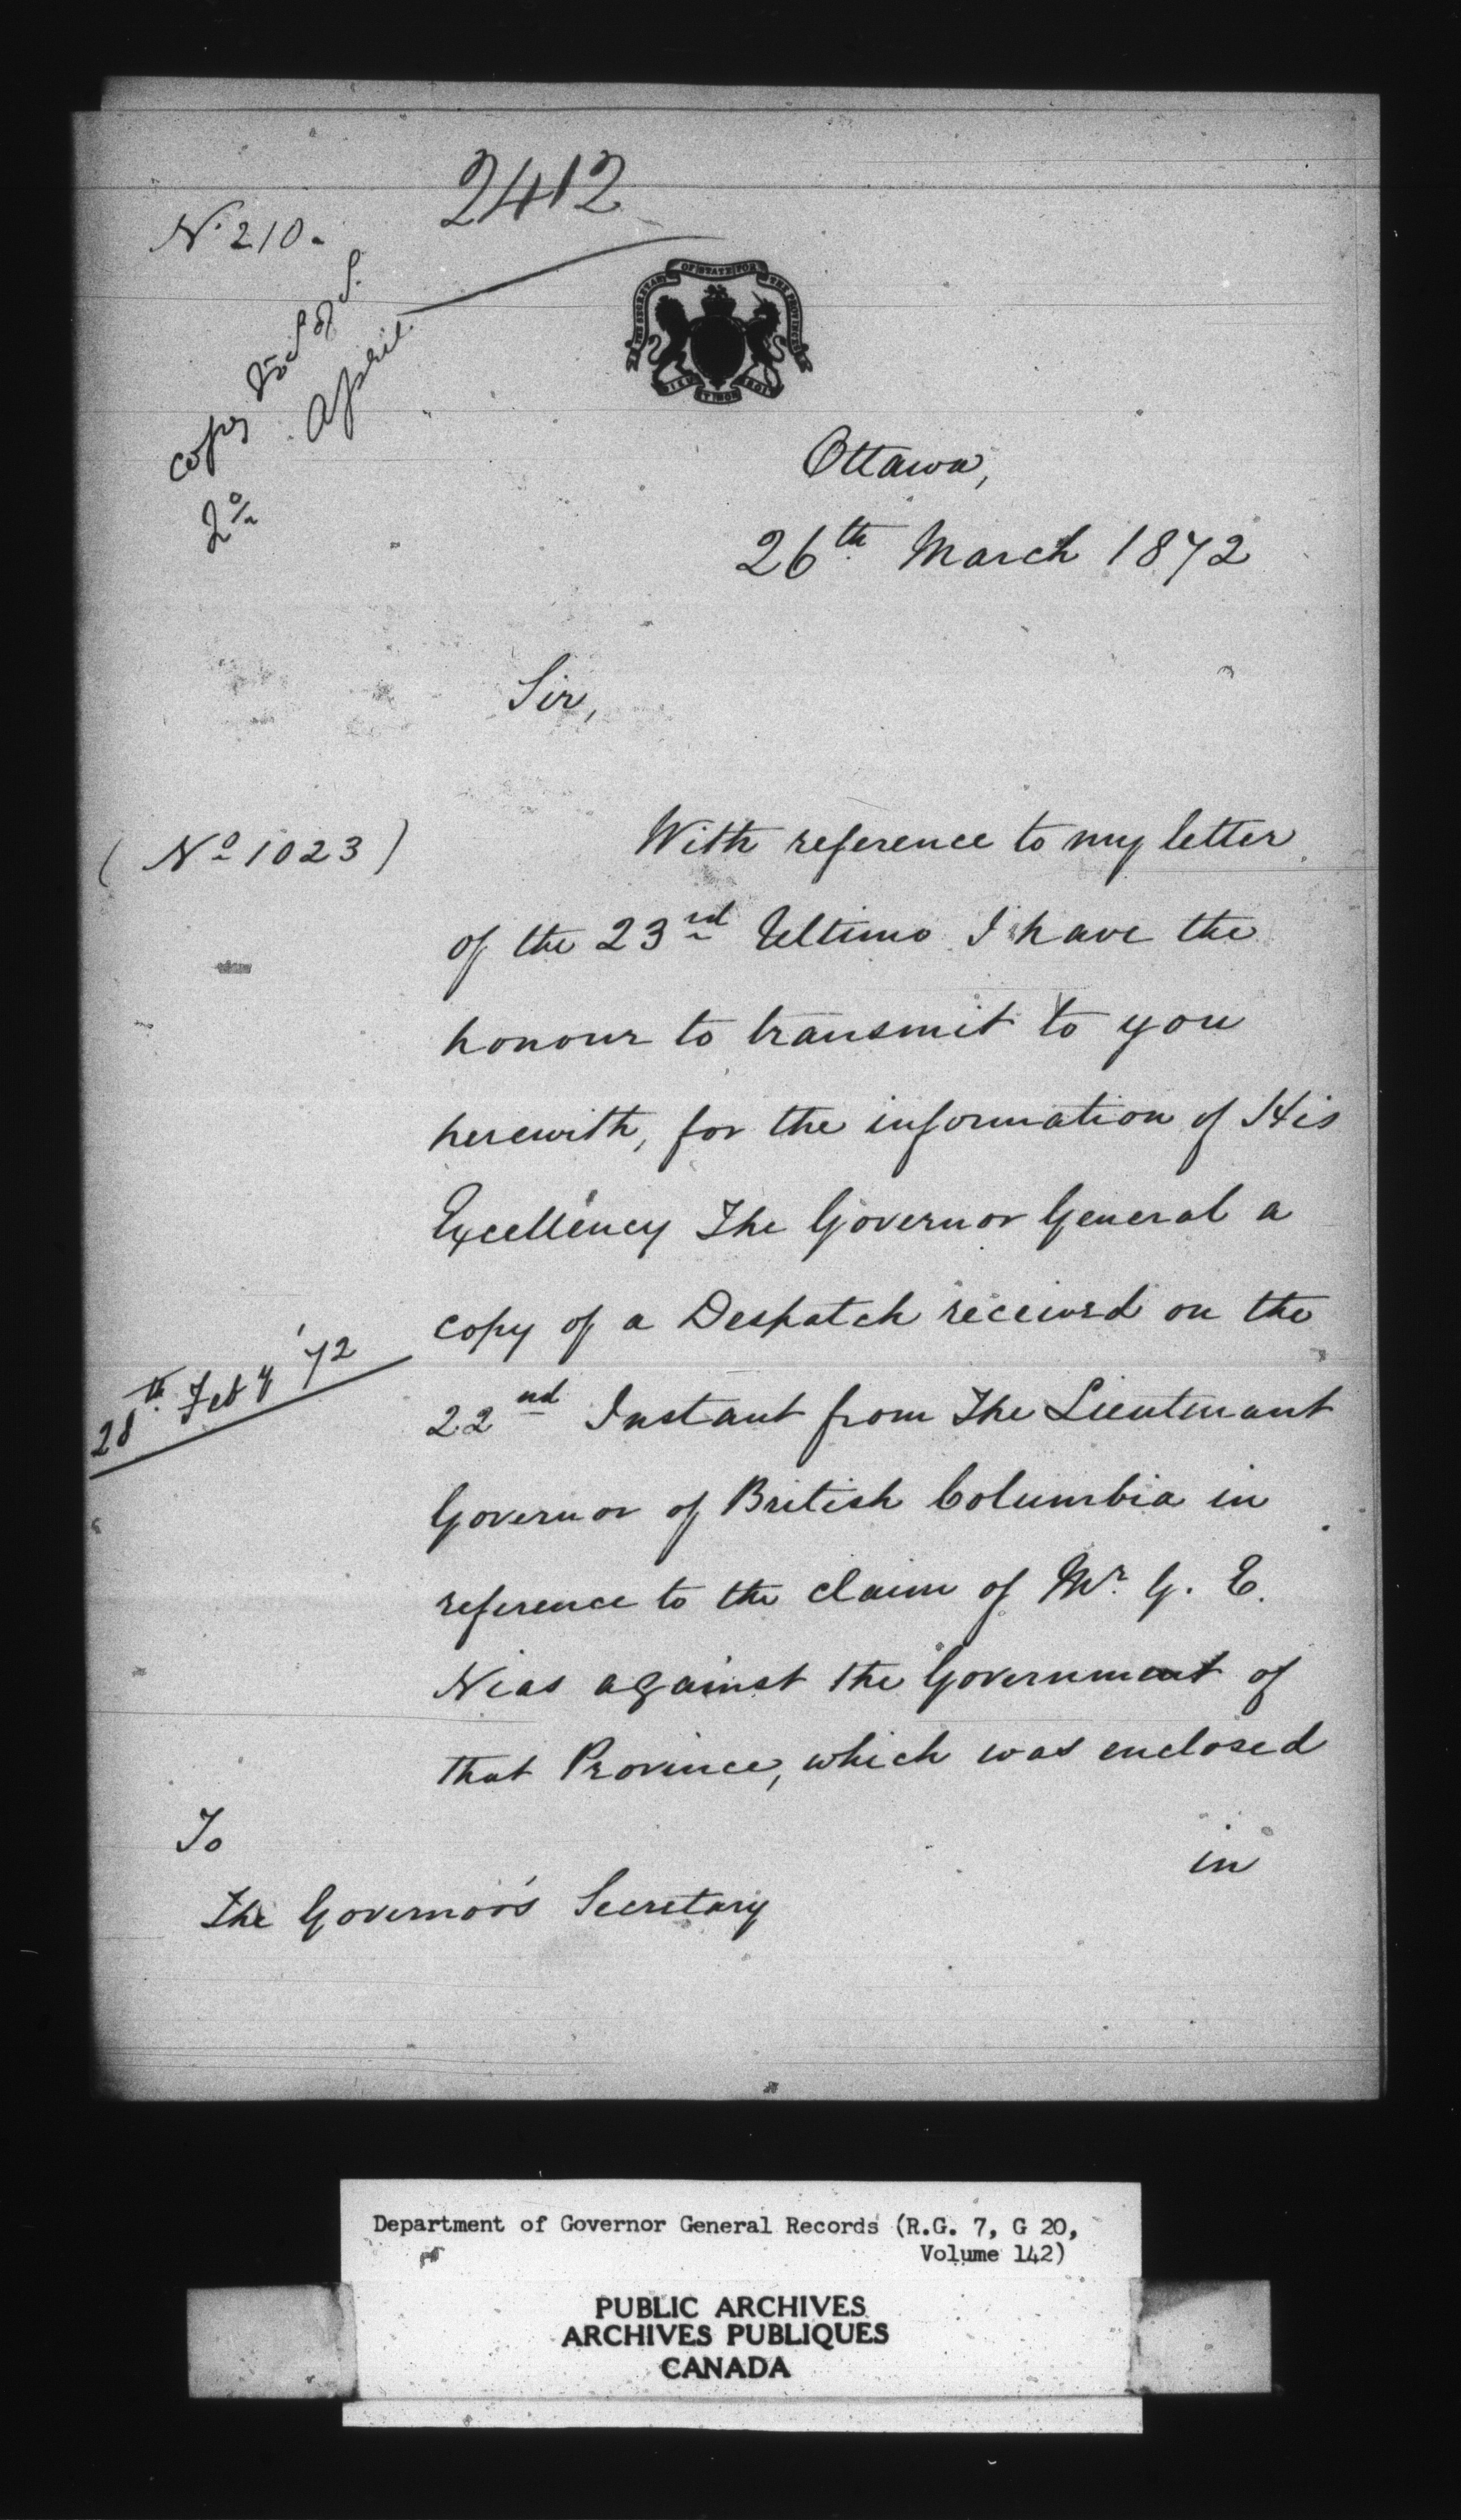 2412
No. 210.
copy to S of S.
2o April
THE SECRETARY OF STATE FOR THE PROVINCES
DIEU ET MON DROIT
Ottawa,
26th March 1872
Sir,
(No 1023)
With reference to my letter
of the 23rd Ultimo I have the
honour to transmit to you
herewith, for the information of His
Excellency The Governor General a
copy of a Despatch received on the
28th Feby '72
22nd Instant from The Lieutenant
Governor of British Columbia in
reference to the claim of Mr. G. E.
Nias against the Government of
that Province, which was enclosed
in
To
The Governor's Secretary
Department of Governor General Records (R.G. 7, G 20,
Volume 142)
PUBLIC ARCHIVES
ARCHIVES PUBLIQUES
CANADA